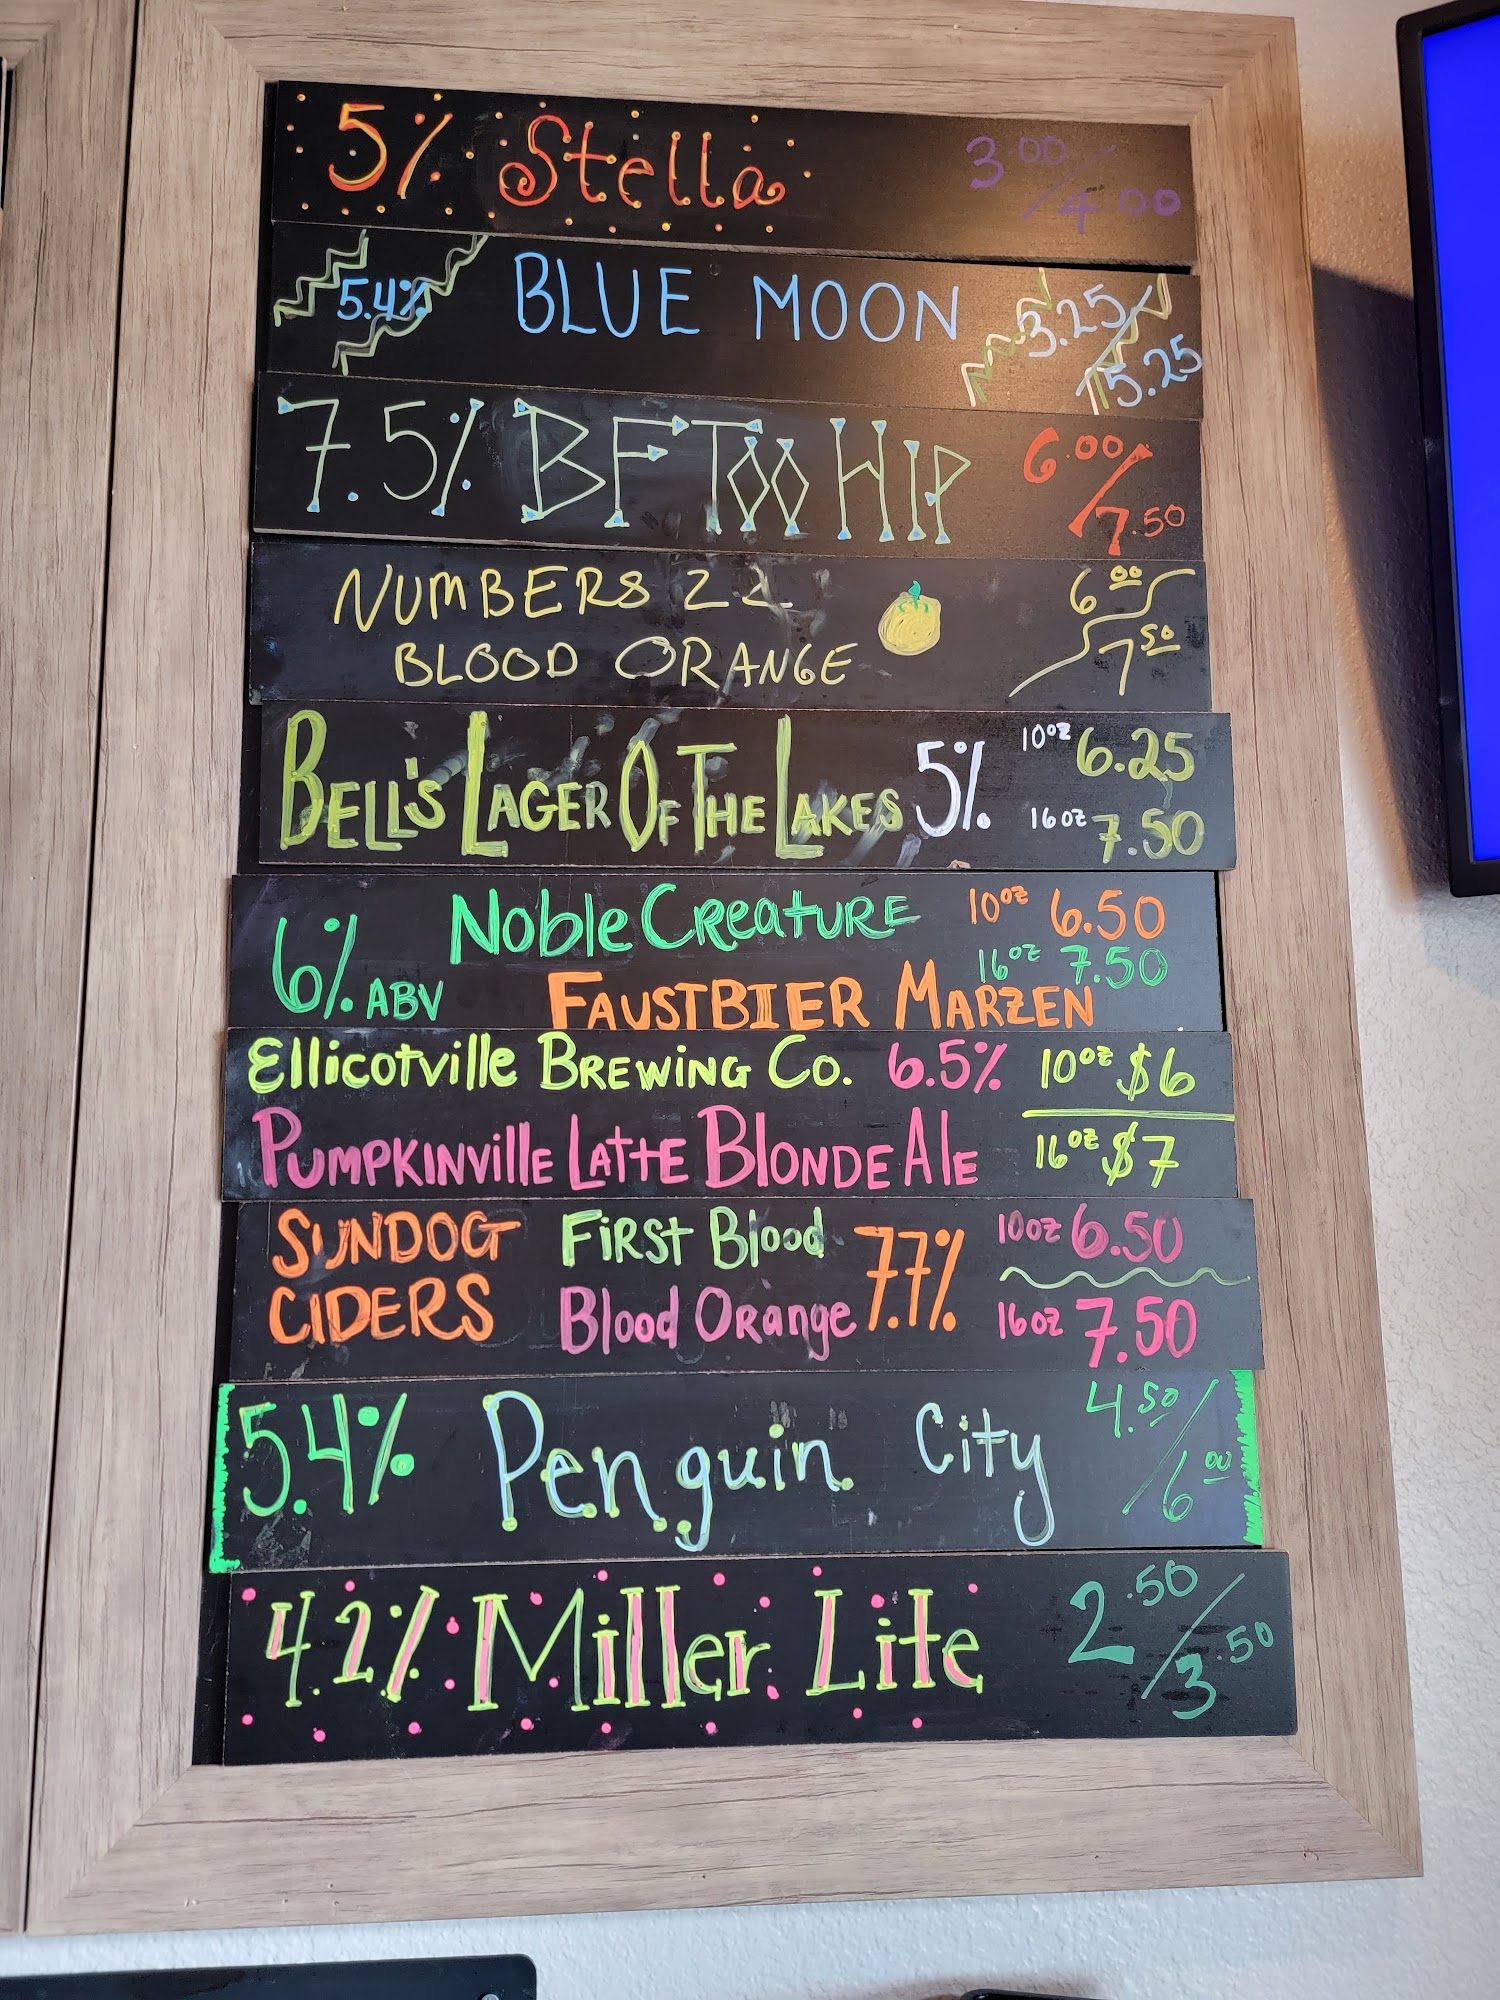 5% Stella 3.00/4.00
5.4% BLUE MOON 3.25/5.25
7.5% BF TOO HIP 6.00/7.50
NUMBERS 22 6.00
BLOOD ORANGE 7.50
BELL'S LAGER OF THE LAKES 5% 10oz 6.25
16oz 7.50
6% ABV Noble Creature 10oz 6.50
16oz 7.50
FAUSTBIER MARZEN
Ellicotville BREWING Co. 6.5% 10oz $6
PUMPKINVIllE LATTE BLONDE AlE 16oz $7
SUNDOG FIRST Blood 7.7% 10oz 6.50
CIDERS Blood ORange 16oz 7.50
5.4% Penguin City 4.50/6.00
4.2% Miller Lite 2.50/3.50